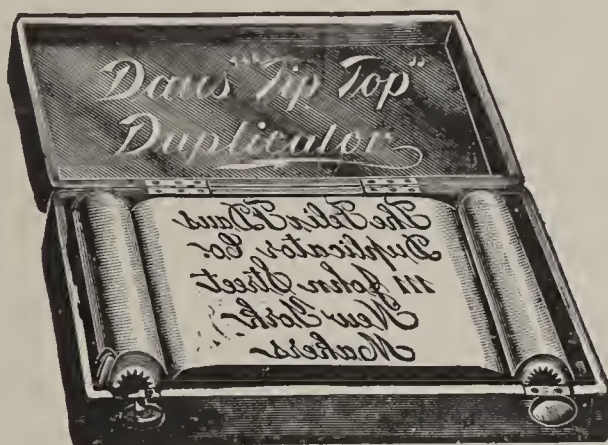 Daus "Tip Top"
Duplicator
The Felix F. Daus
Duplicator Co.
111 John Street
New York
Makers